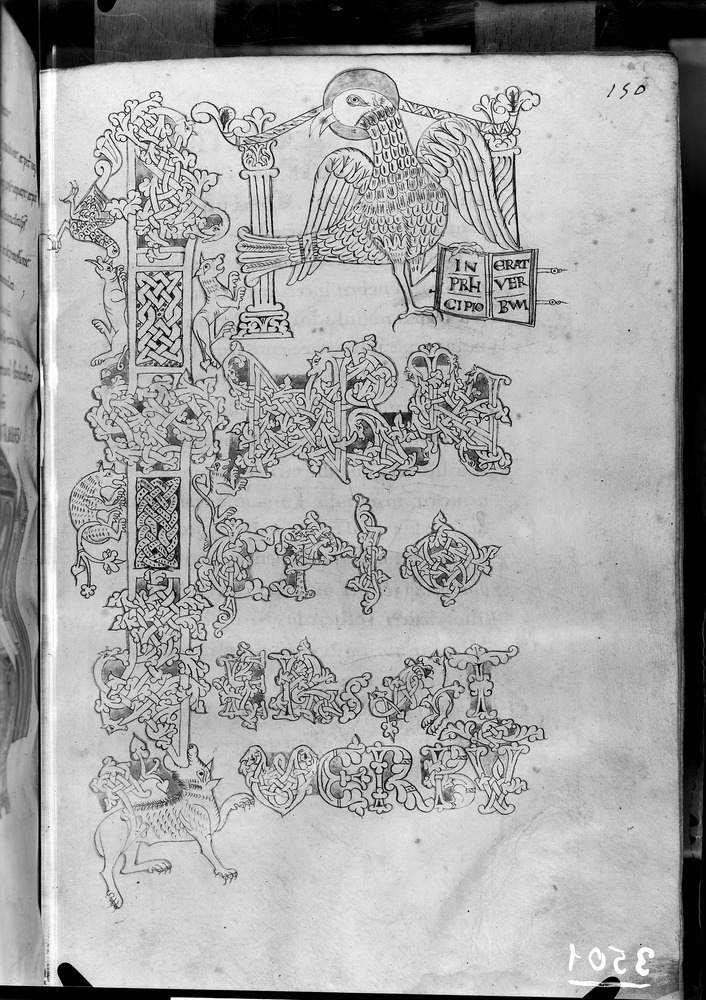 150
IN
PRIN
CIPIO
ERAT
VER
BVM
IN PRIN
CIPIO
ERAT
VERBV
3501